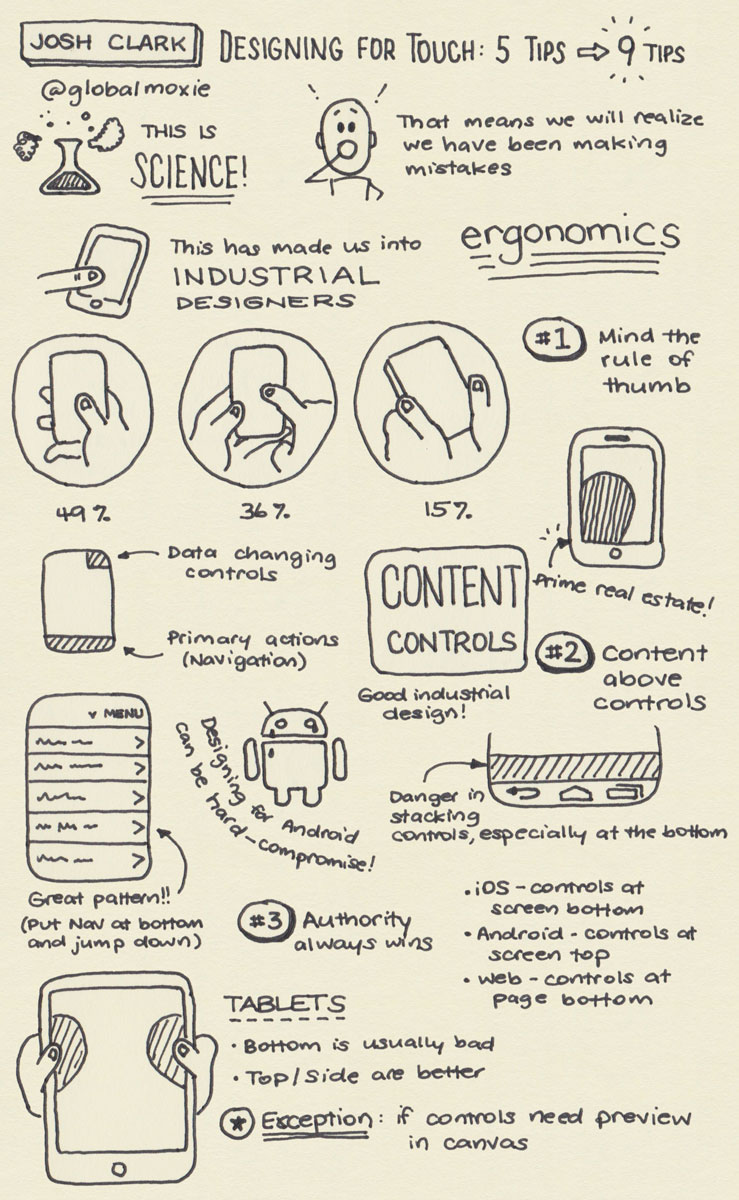 JOSH CLARK
DESIGNING FOR TOUCH: 5 TIPS ⇨ 9 TIPS
@globalmoxie
THIS IS
SCIENCE!
That means we will realize
we have been making
mistakes
This has made us into
INDUSTRIAL
DESIGNERS
ergonomics
#1 Mind the
rule of
thumb
49%
36%
15%
Prime real estate!
Data changing
controls
Primary actions
(Navigation)
CONTENT
CONTROLS
Good industrial
design!
#2 Content
above
controls
v MENU
Great pattern!!
(Put Nav at bottom
and jump down)
Designing for Android
can be hard-compromise!
Danger in
stacking
controls, especially at the bottom
#3 Authority
always wins
• iOS - controls at
screen bottom
• Android - controls at
screen top
• Web - controls at
page bottom
TABLETS
• Bottom is usually bad
• Top/Side are better
* Exception: if controls need preview
in canvas